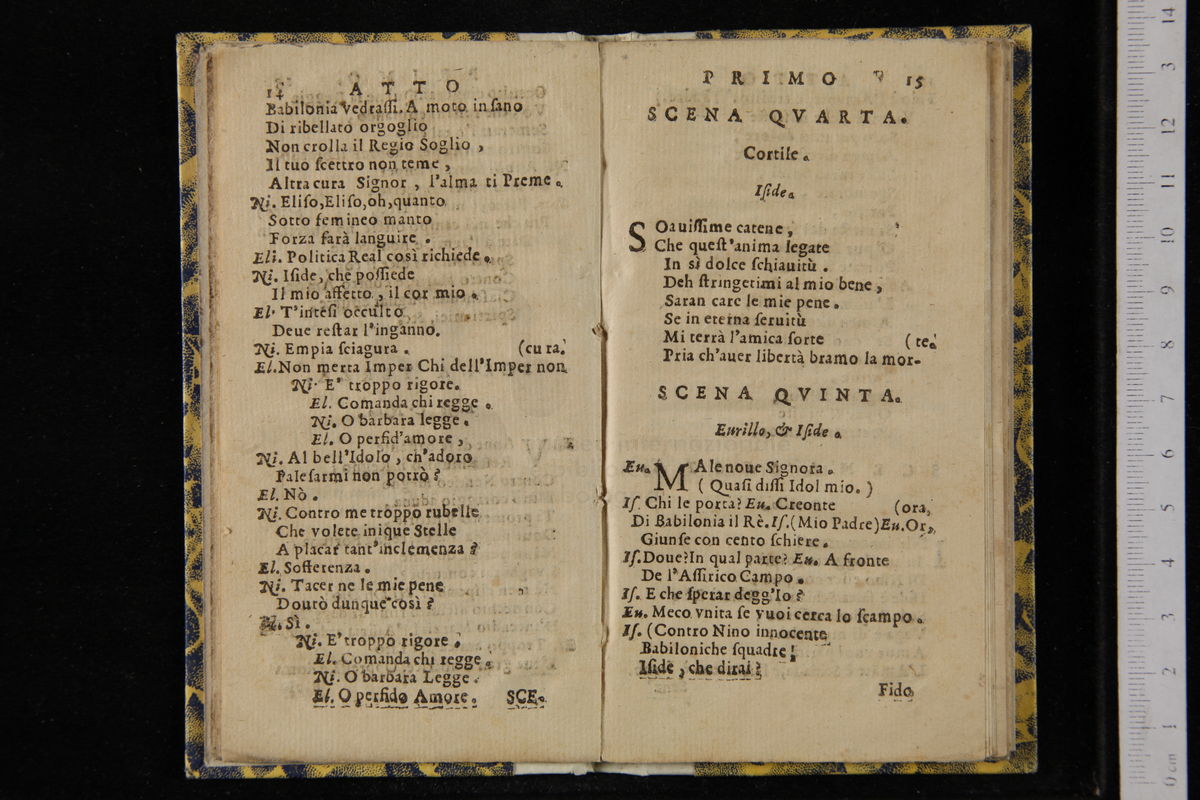 14 ATTO
Babilonia vedraſſi. A moto inſano
Di ribellato orgoglio
Non crolla il Regio Soglio ,
Il tuo ſcettro non teme ,
Altra cura Signor , l'alma ti Preme.
Ni. Eliſo,Eliſo,oh,quanto
Sotto femineo manto
Forza farà languire .
Eli. Politica Real così richiede.
Ni. Iſide, che poſſiede
Il mio affetto , il cor mio .
El. T'inteſi occulto
Deue reſtar l'inganno.
Ni. Empia ſciagura . (cura.
El.Non merta Imper Chi dell'Imper non
Ni. E' troppo rigore.
El. Comanda chi regge .
Ni. O barbara legge .
El. O perfid'amore ,
Ni. Al bell'Idolo , ch'adoro
Paleſarmi non potrò ?
El. Nò .
Ni. Contro me troppo rubelle
Che volete inique Stelle
A placar tant'inclemenza ?
El. Sofferenza .
Ni. Tacer ne le mie pene
Dourò dunque così ?
El. Sì .
Ni. E' troppo rigore .
El. Comanda chi regge .
Ni. O barbara Legge .
El. O perfido Amore. SCE.
PRIMO 15
SCENA QVARTA.
Cortile.
Iſide.
SOauiſſime catene ,
Che queſt'anima legate
In sì dolce ſchiauitù .
Deh ſtringetimi al mio bene ,
Saran care le mie pene .
Se in eterna ſeruitù
Mi terrà l'amica ſorte (te.
Pria ch'auer libertà bramo la mor-
SCENA QVINTA.
Eurillo, & Iſide .
Eu. MAle noue Signora .
( Quaſi diſſi Idol mio. )
Iſ. Chi le porta? Eu. Creonte (ora,
Di Babilonia il Rè. Iſ.(Mio Padre)Eu.Or,
Giunſe con cento ſchiere .
Iſ.Doue?In qual parte? Eu. A fronte
De l'Aſſirico Campo .
Iſ. E che ſperar degg'Io ?
Eu. Meco vnita ſe vuoi cerca lo ſcampo .
Iſ. (Contro Nino innocente
Babiloniche ſquadre !
Iſide , che dirai ?
Fido
0 cm 1 2 3 4 5 6 7 8 9 10 11 12 13 14